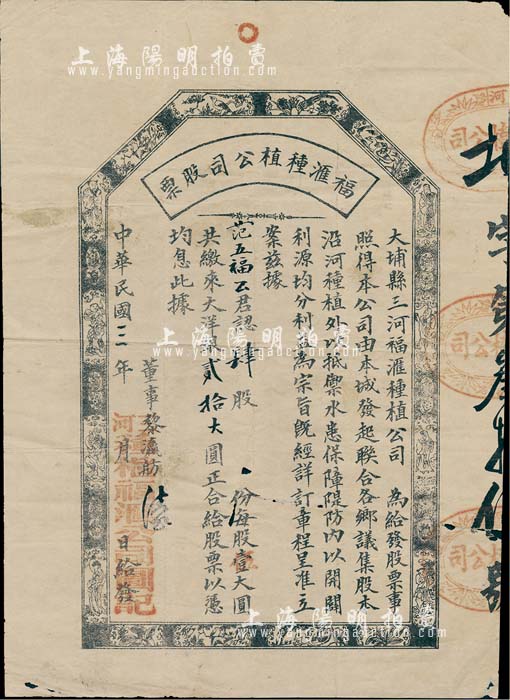 上海陽明拍賣
www.yangmingauction.com
福滙種植公司股票
大埔縣三河福滙種植公司 為給發股票事
照得本公司由本城發起聯合各鄉議集股本
沿河種植外以抵禦水患保障隄防內以開闢
利源均分利益為宗旨既經詳訂章程呈准立
案茲據
范五福公君認肆股 份每股壹大圓
共繳來大洋 貳拾大圓正合給股票以憑
均息此據
董事黎
中華民國三年 月 日給發
字第 號
上海陽明拍賣
www.yangmingauction.com
上海陽明拍賣
www.yangmingauction.com